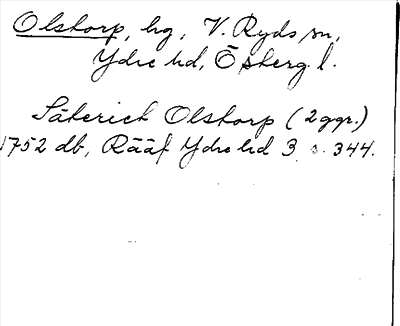 Olstorp, hg, V. Ryds sn,
Ydre hd, Ö stergl.
Säterich Olstorp (2 ggr.)
1752 db, Rääf Ydre hd 3 s. 344.